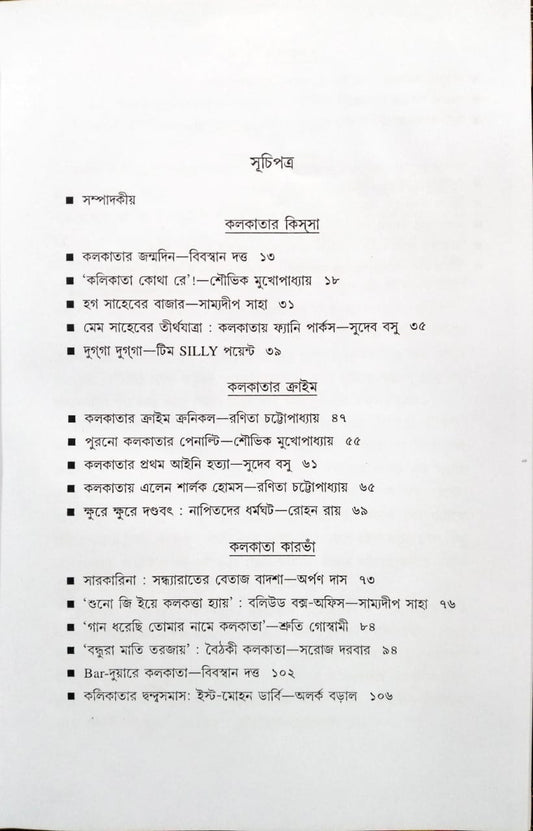 সূচিপত্র
■ সম্পাদকীয়
কলকাতার কিস্সা
■ কলকাতার জন্মদিন—বিবস্বান দত্ত ১৩
■ ‘কলিকাতা কোথা রে’!—শৌভিক মুখোপাধ্যায় ১৮
■ হগ সাহেবের বাজার—সাম্যদীপ সাহা ৩১
■ মেম সাহেবের তীর্থযাত্রা : কলকাতায় ফ্যানি পার্কস—সুদেব বসু ৩৫
■ দুগ্‌গা দুগ্‌গা—টিম SILLY পয়েন্ট ৩৯
কলকাতার ক্রাইম
■ কলকাতার ক্রাইম ক্রনিকল—রণিতা চট্টোপাধ্যায় ৪৭
■ পুরনো কলকাতার পেনাল্টি—শৌভিক মুখোপাধ্যায় ৫৫
■ কলকাতার প্রথম আইনি হত্যা—সুদেব বসু ৬১
■ কলকাতায় এলেন শার্লক হোমস—রণিতা চট্টোপাধ্যায় ৬৫
■ ক্ষুরে ক্ষুরে দণ্ডবৎ : নাপিতদের ধর্মঘট—রোহন রায় ৬৯
কলকাতা কারভাঁ
■ সারকারিনা : সন্ধ্যারাতের বেতাজ বাদশা—অর্পণ দাস ৭৩
■ ‘শুনো জি ইয়ে কলকত্তা হ্যায়’ : বলিউড বক্স-অফিস—সাম্যদীপ সাহা ৭৬
■ ‘গান ধরেছি তোমার নামে কলকাতা’—শ্রুতি গোস্বামী ৮৪
■ ‘বন্ধুরা মাতি তরজায়’ : বৈঠকী কলকাতা—সরোজ দরবার ৯৪
■ Bar-দুয়ারে কলকাতা—বিবস্বান দত্ত ১০২
■ কলিকাতার দ্বন্দ্বসমাস: ইস্ট-মোহন ডার্বি—অলর্ক বড়াল ১০৬